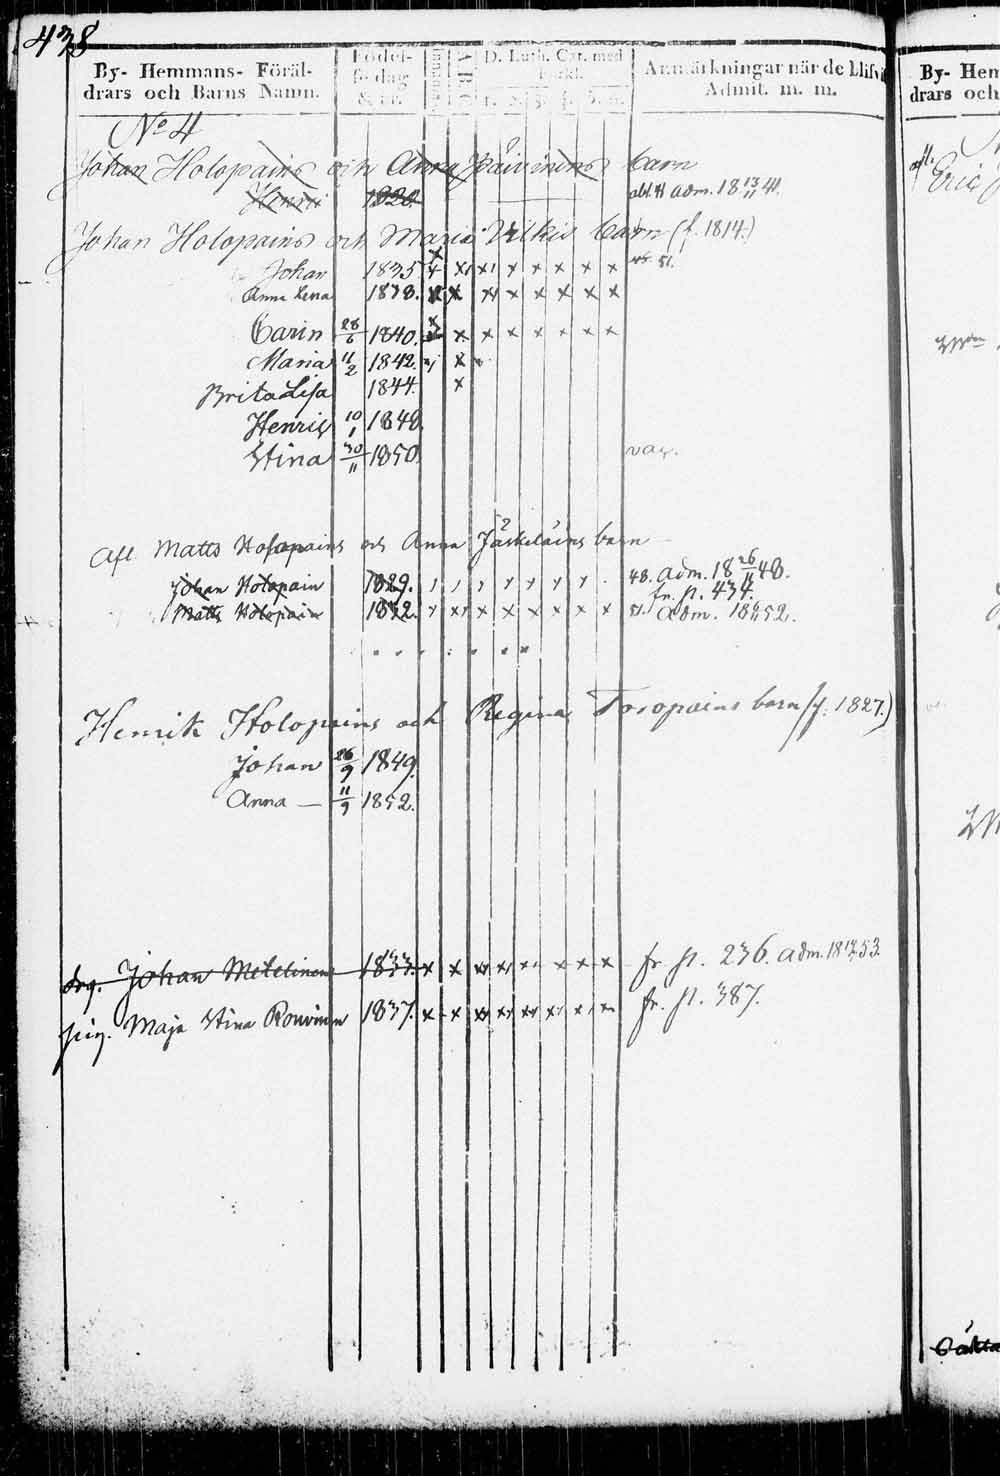 438
By- Hemmans- Föräl-
drars och Barns Namn.
Födel-
se dag
& år.
D. Luth. Cat. med
Förkl.
Anmärkningar när de blifvit
Admit. m. m.
No 4
Johan Holopains och Anna Päivinens barn
Henric 1820. abl. 41 adm. 18 13/11 41.
Johan Holopains och Maria Vilkis barn (f. 1814.)
Johan 1835 51.
Anna Lena 1838.
Carin 28/6 1840.
Maria 11/2 1842.
Brita Lisa 1844.
Henric 10/1 1848.
Stina 30/11 1850. vac.
Afl. Matts Holopains och Anna Jäskeläins barn
Johan Holopain 1829. 48. adm. 18 26/11 48.
fr. p. 434.
Matts Holopain 1832. 51. adm. 18 52.
Henrik Holopains och Regina Toropains barn (f. 1827.)
Johan 26/9 1849.
Anna — 11/9 1852.
drg. Johan Metelinen 1833. fr p. 236. adm. 18 53.
pig. Maja Stina Rouvinen 1837. fr. p. 387.
By- Hem
drars och
afl. Eric